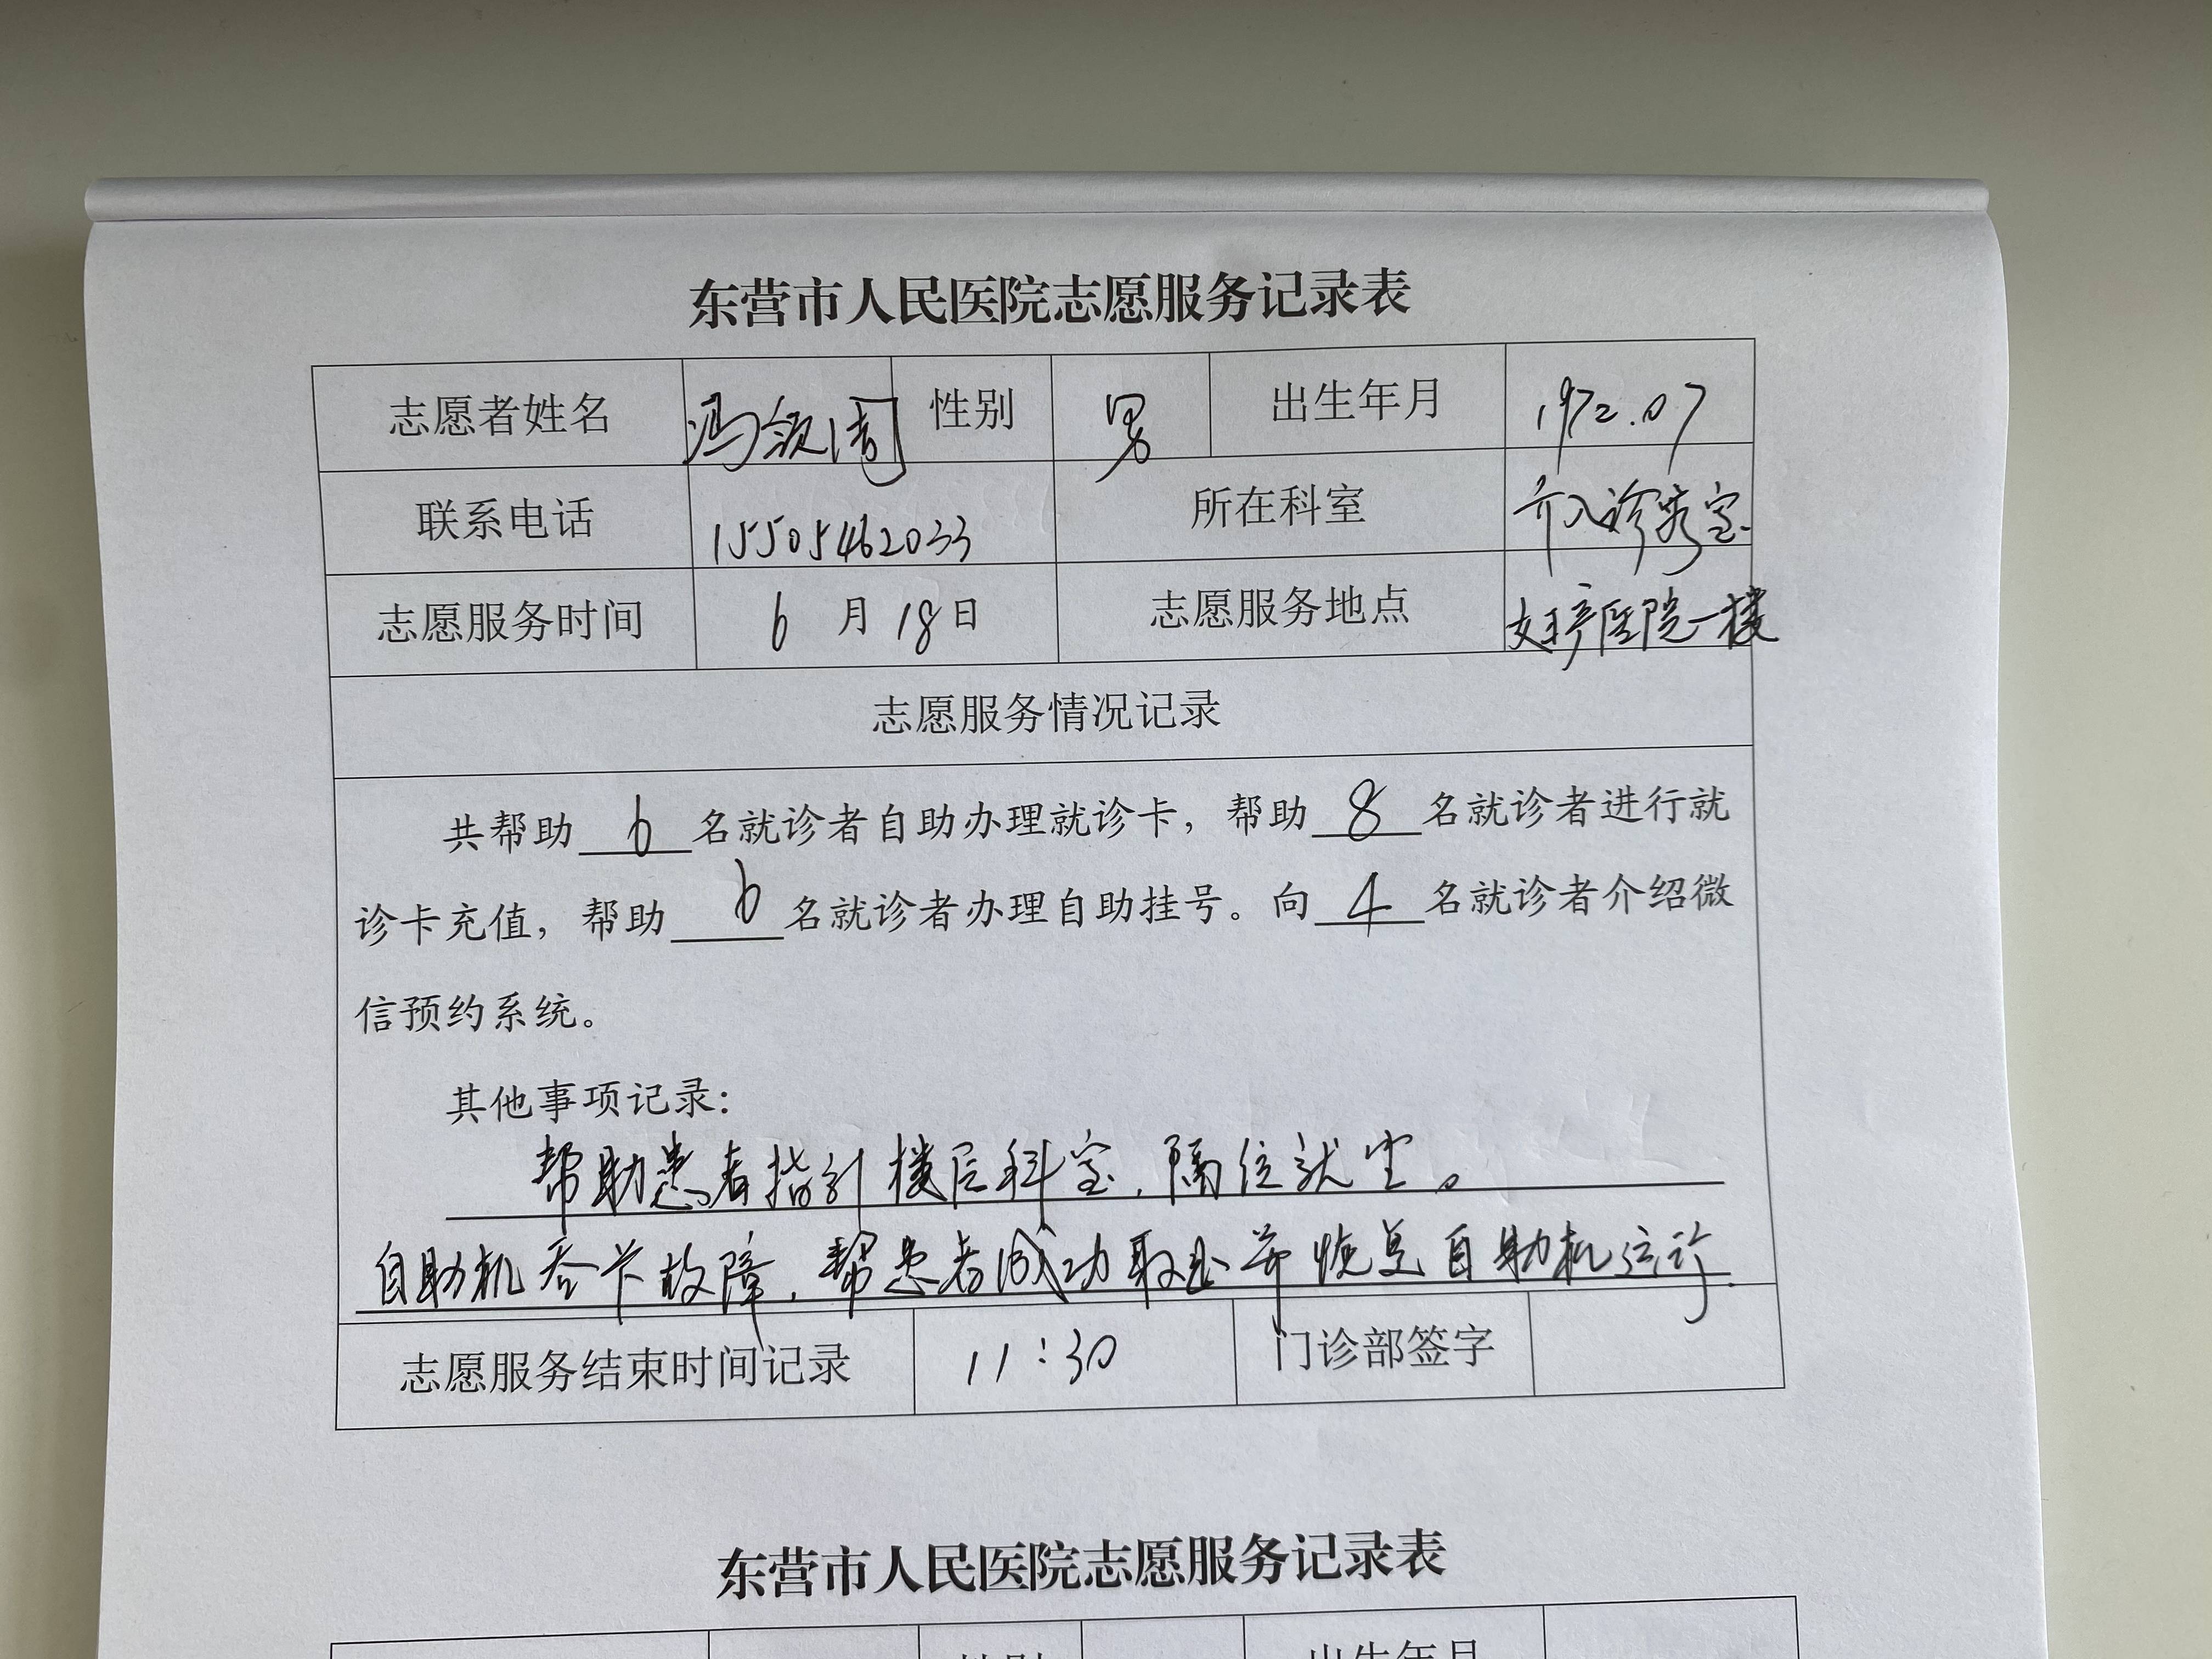 东营市人民医院志愿服务记录表
志愿者姓名 冯 性别 男 出生年月 1972.07
联系电话 15505462033 所在科室 介入诊疗室
志愿服务时间 6月18日 志愿服务地点 妇产医院一楼
志愿服务情况记录
共帮助 6 名就诊者自助办理就诊卡，帮助 8 名就诊者进行就
诊卡充值，帮助 6 名就诊者办理自助挂号。向 4 名就诊者介绍微
信预约系统。
其他事项记录：
帮助患者指引楼层科室，隔位就坐。
自助机吞卡故障，帮患者成功取出并恢复自助机运行.
志愿服务结束时间记录 11:30 门诊部签字
东营市人民医院志愿服务记录表
性别 出生年月